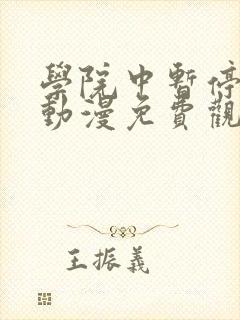 學院中暫停
動漫免費觀
王振義